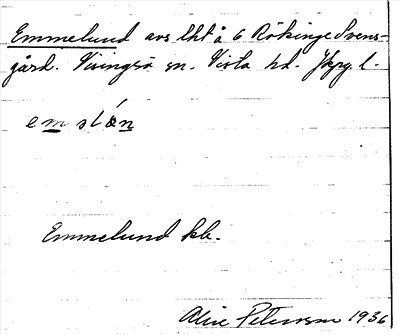 Emmelund avs. lht å 6 Rökinge Svens-
gård. Visingsö sn. Vista hd. Jkpg. l.
emslæ̀n
Emmelund kb.
Alice Peterson 1936